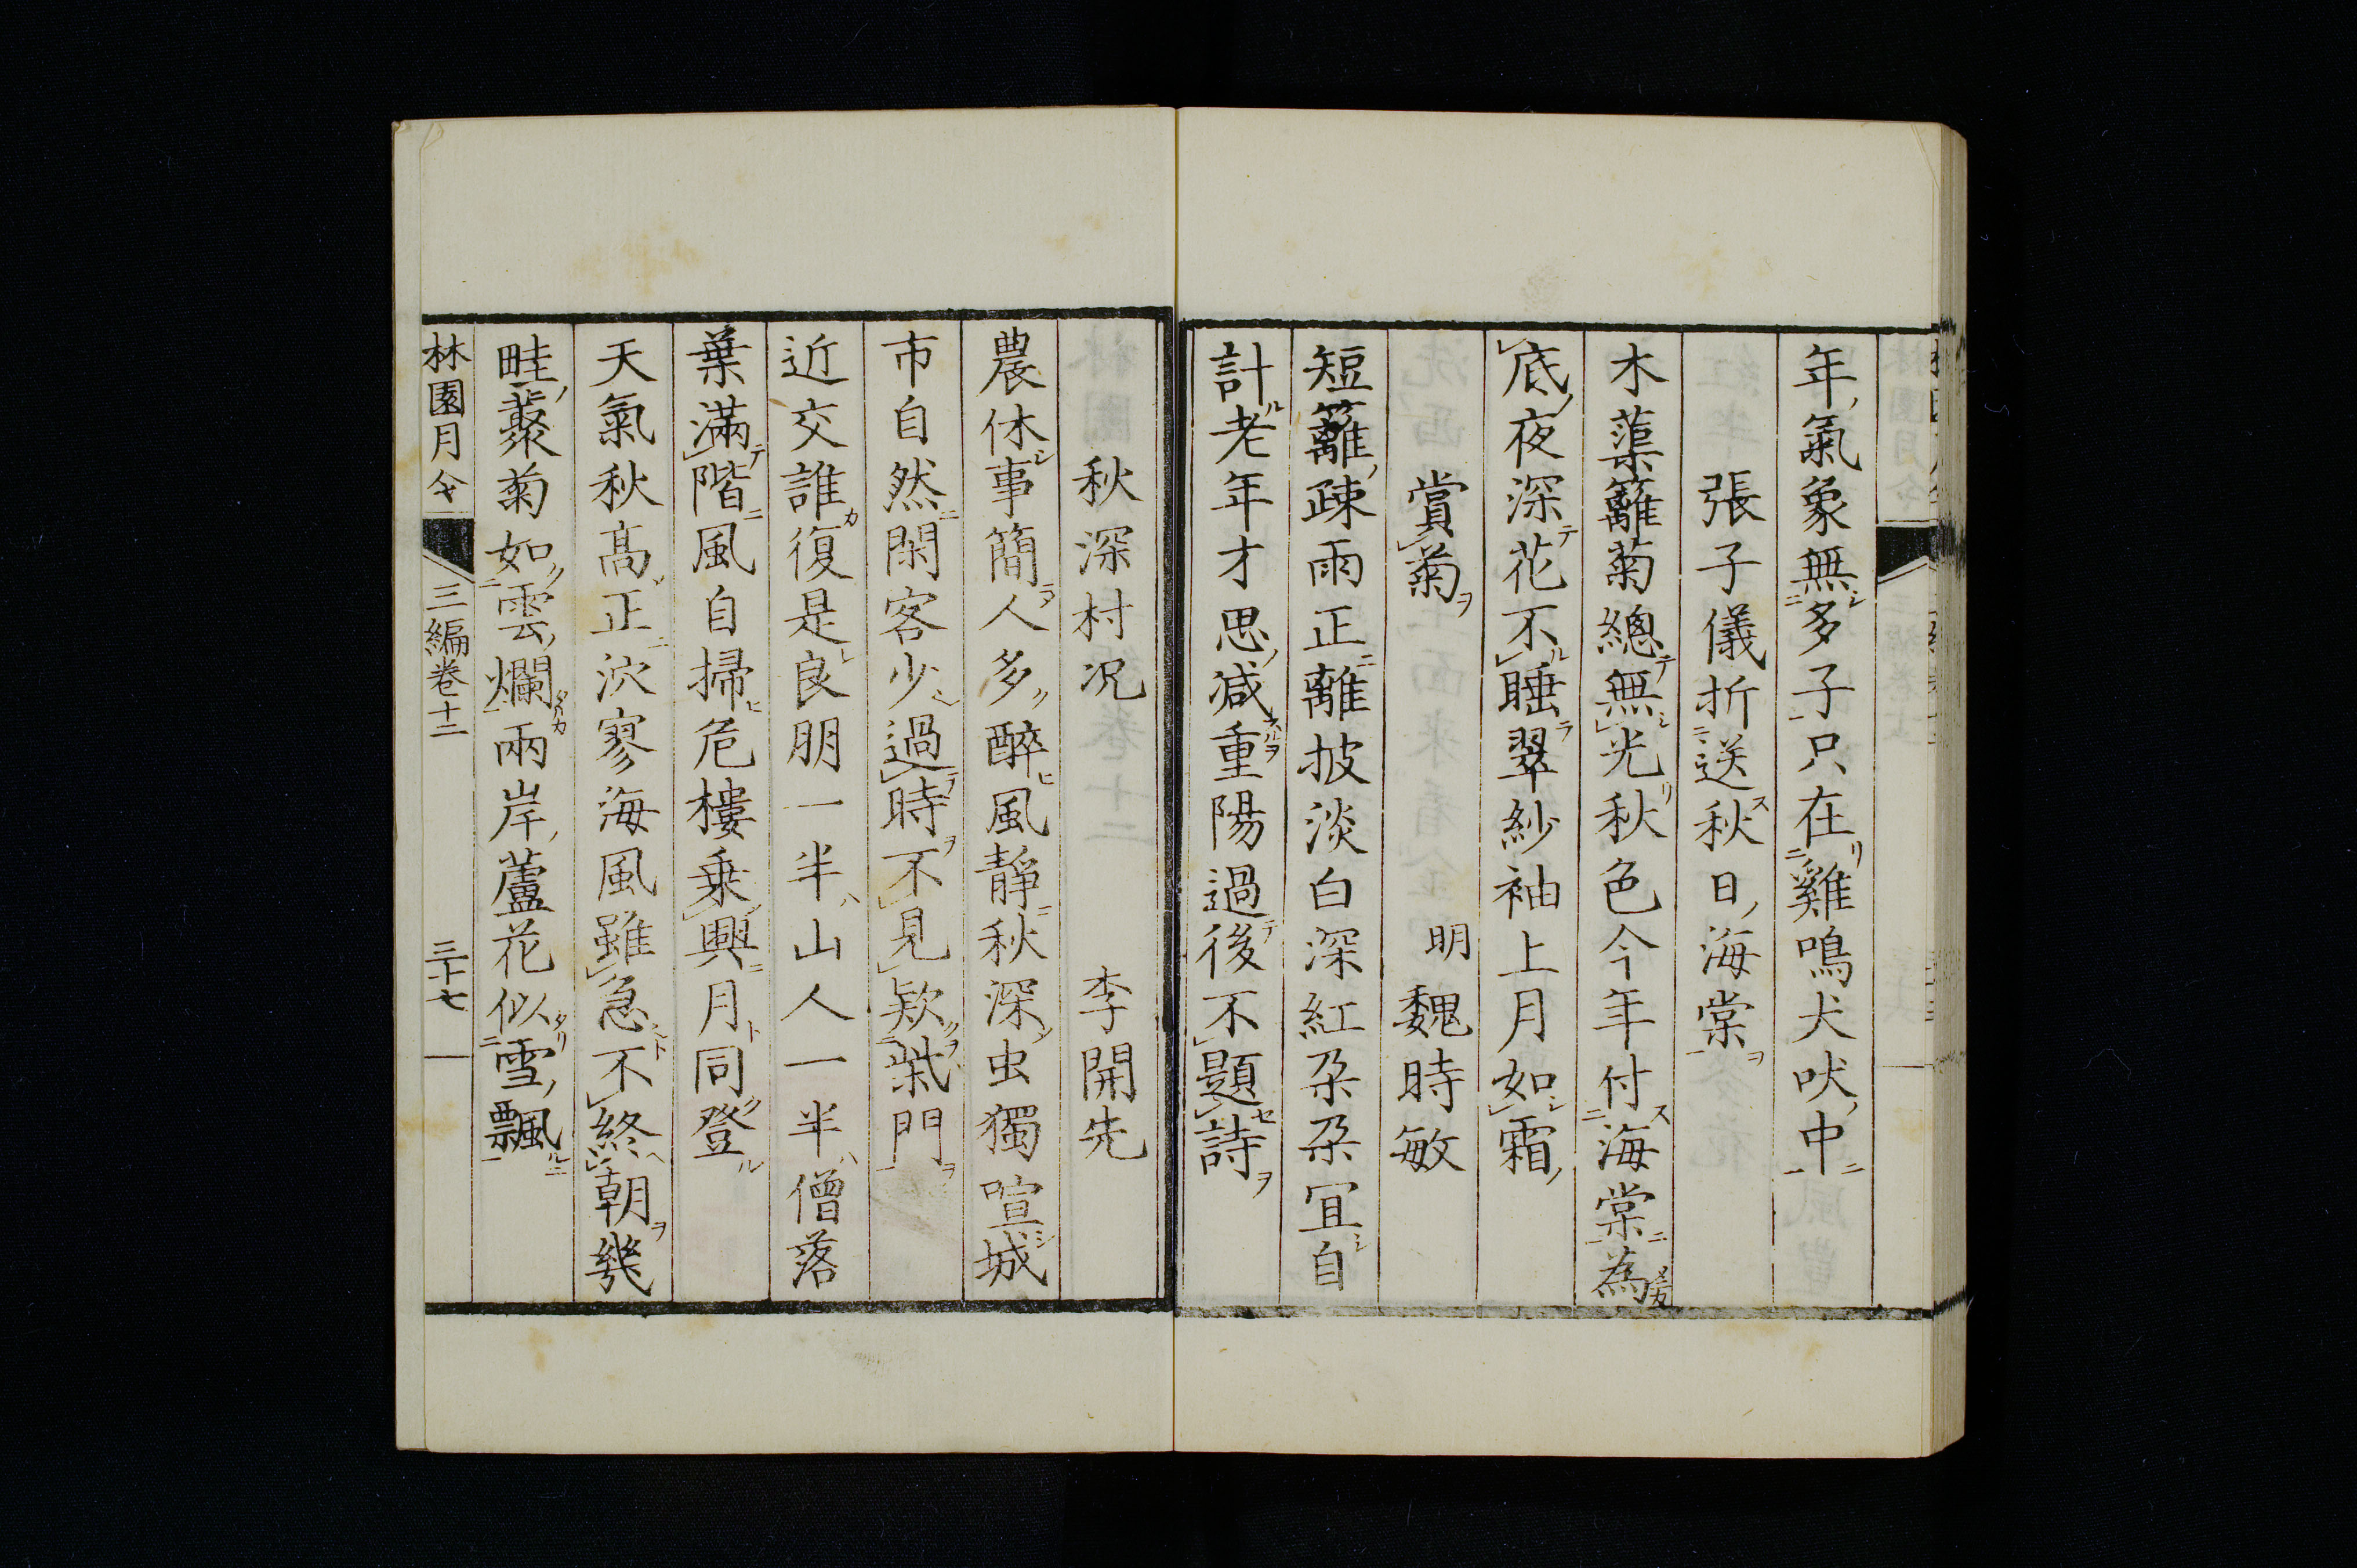 年氣象無多子只在雞鳴犬吠中
張子儀折送秋日海棠
木蕖籬菊總無光秋色今年付海棠為
底夜深花不睡翠紗袖上月如霜
賞菊 明 魏時敏
短籬疎雨正離披淡白深紅朶朶冝自
計老年才思减重陽過後不題詩
秋深村况 李開先
農休事簡人多醉風靜秋深虫獨喧城
市自然閑客少過時不見欵柴門
近交誰復是良朋一半山人一半僧落
葉滿階風自掃危樓乗興月同登
天氣秋髙正泬寥海風雖急不終朝幾
畦藂菊如雲爛兩岸蘆花似雪飄
林園月令 三編卷十二 三十七